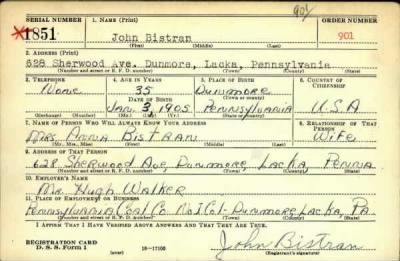 901
SERIAL NUMBER 1. NAME (Print) ORDER NUMBER
1851 John Bistran 901
(First) (Middle) (Last)
2. ADDRESS (Print)
628 Sherwood Ave. Dunmore, Lacka, Pennsylvania
(Number and street or R. F. D. number) (Town) (County) (State)
3. TELEPHONE 4. AGE IN YEARS 5. PLACE OF BIRTH 6. COUNTRY OF CITIZENSHIP
None 35 Dunmore
DATE OF BIRTH (Town or county)
Jan. 3, 1905 Pennsylvania U.S.A
(Exchange) (Number) (Mo.) (Day) (Yr.) (State or country)
7. NAME OF PERSON WHO WILL ALWAYS KNOW YOUR ADDRESS 8. RELATIONSHIP OF THAT PERSON
Mrs. Anna Bistran Wife
(Mr., Mrs., Miss) (First) (Middle) (Last)
9. ADDRESS OF THAT PERSON
628 Sherwood Ave, Dunmore, Lacka, Penna
(Number and street or R. F. D. number) (Town) (County) (State)
10. EMPLOYER'S NAME
Mr. Hugh Walker
11. PLACE OF EMPLOYMENT OR BUSINESS
Pennsylvania Coal Co. No 1 Col- Dunmore Lacka, Pa.
(Number and street or R. F. D. number) (Town) (County) (State)
I AFFIRM THAT I HAVE VERIFIED ABOVE ANSWERS AND THAT THEY ARE TRUE.
REGISTRATION CARD
D. S. S. Form 1 (over) 16—17105 John Bistran
(Registrant's signature)